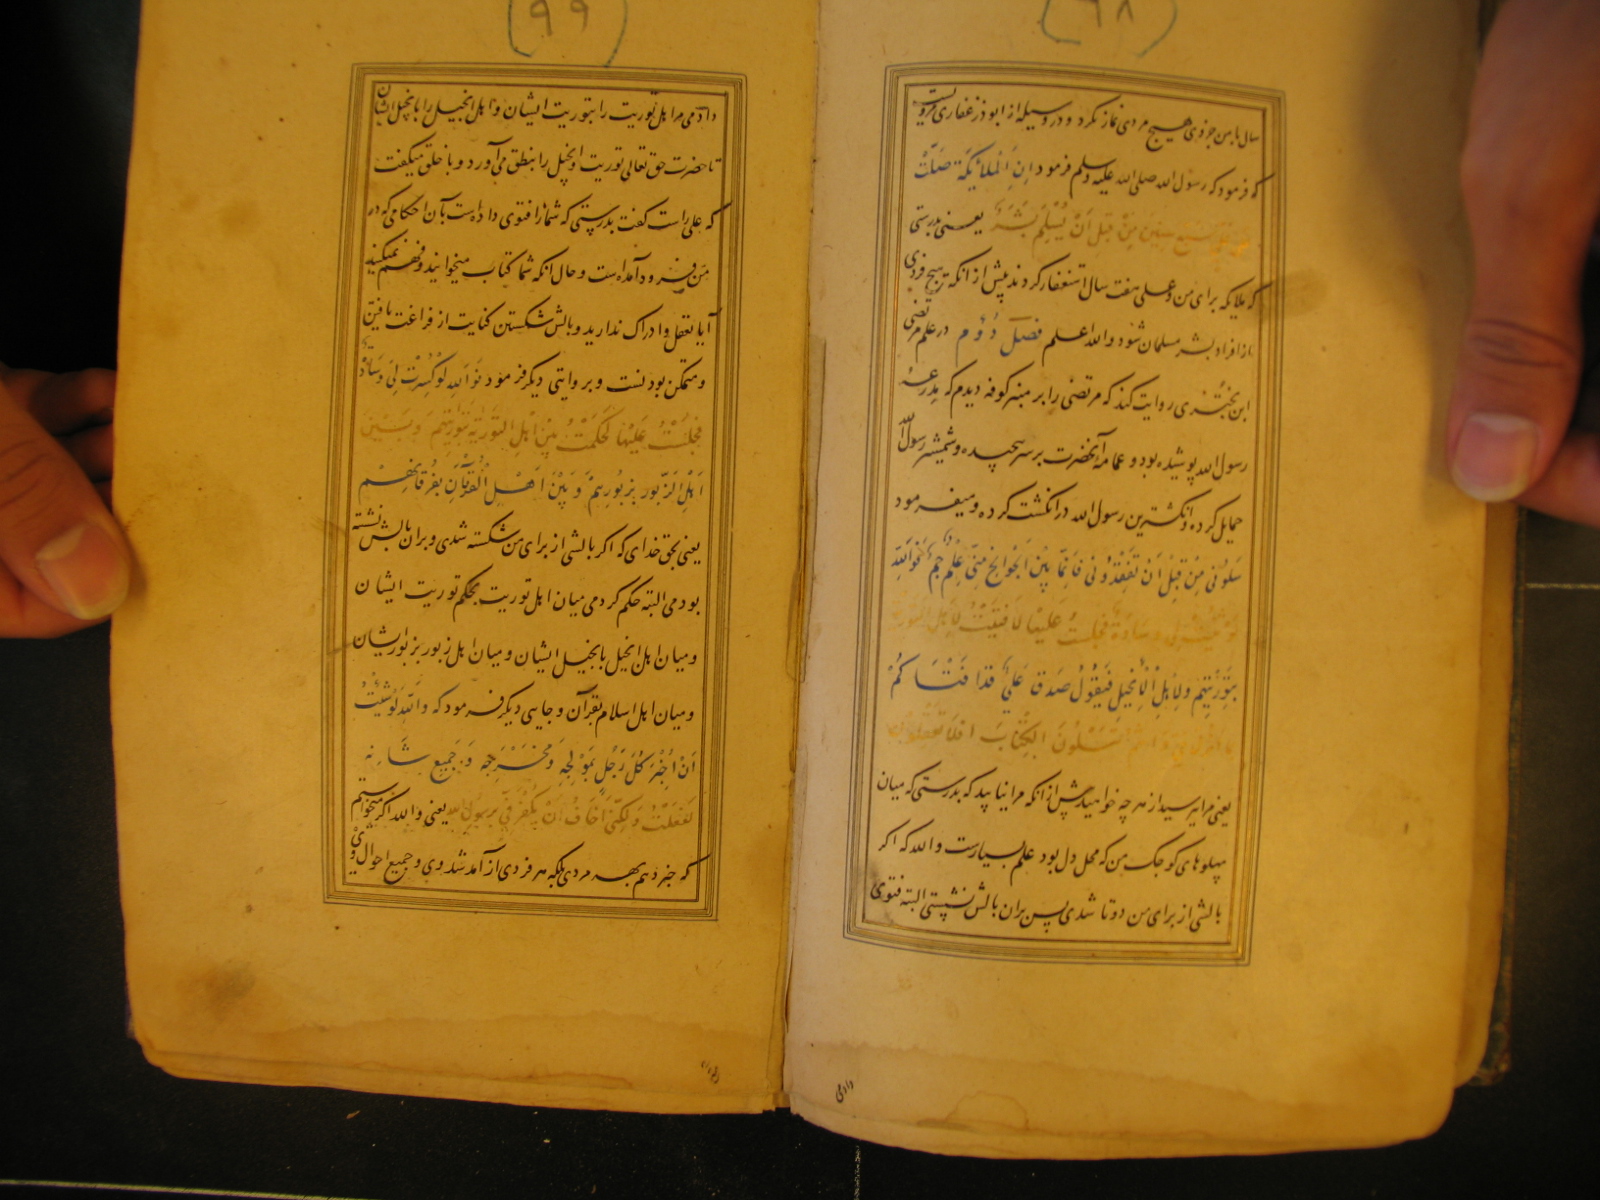 (٦٨
سال با من جز وی هیچ مردی نماز نکرد و در وسیله از ابوذر غفاری مرویست
که فرمود که رسول الله صلی الله علیه و سلم فرمود اِنَّ الْمَلائِکَةَ صَلَّتْ
سِنینَ مِنْ قَبلِ اَنْ یُسْلِمَ بَشَرٌ یعنی بدرستی
که ملایکه برای من و علی هفت سال استغفار کردند پیش از انکه هیچ فردی
از افراد بشر مسلمان شود والله اعلم فصل دُوُم در علم مرتضی
ابن بختری روایت کند که مرتضی را بر منبر کوفه دیدم که مدرعهٔ
رسول الله پوشیده بود و عمامهٔ آنحضرت بر سر پیچیده و شمشیر رسول الله
حمایل کرده و انگشترین رسول الله در انگشت کرده و میفرمود
سَلُونی مِنْ قَبْلِ اَنْ تَفْقِدُونی فَاِنَّما بَیْنَ الْجَوانِحِ مِنّی عِلْمٌ جَمٌّ فَوَاللهِ
لی وِسَادَةٌ فَجَلَسْتُ عَلَیْها لَاَفْتَیْتُ لِاَهْلِ التَّوریة
بِتَوْریتِهِم وَلِاَهْلِ الْاِنْجیلِ فَیَقُولُ صَدَقَ عَلیٌّ قَدْ اَفْتَاکُمْ
وَاَنْتُمْ تَتْلُونَ الْکِتابَ اَفَلا تَعْقِلُونَ
یعنی مرا بپرسید از هر چه خواهید پیش از انکه مرا نیابید که بدرستی که میان
پهلوهای کوچک من که محل دل بود علم بسیارست و الله که اکر
بالشی از برای من دوتا شدی پس بران بالش نشستی البته فتوی
دادمی
(٩٩)
دادمی مر اهل توریت را بتوریت ایشان و اهل انجیل را بانجیل ایشان
تا حضرت حق تعالی توریت و انجیل را بنطق می آورد و با خلق میگفت
که علی راست گفت بدرستی که شما را فتوی داده است بآن احکامی که در
من فرود آمده است و حال انکه شما کتاب میخوانید و فهم نمیکنید
آیا تعقل و ادراک ندارید و بالش شکستن کنایت از فراغت یافتن
و متمکن بودنست و بروایتی دیگر فرمود وَاللهِ لَوْ کُسِرَت لی وِسَادَةٌ
فَجَلَسْتُ عَلَیْها لَحَکَمْتُ بَیْنَ اَهْلِ التَّوریةِ بِتَوریتِهِم وَ بَیْنَ
اَهْلِ الزَّبورِ بِزَبُورِهِمْ وَ بَیْنَ اَهْلِ الْفُرْقانِ بِفُرْقانِهِمْ
یعنی بحق خدای که اکر بالشی از برای من شکسته شدی و بران بالش نشسته
بودمی البته حکم کردمی میان اهل توریت بحکم توریت ایشان
و میان اهل انجیل بانجیل ایشان و میان اهل زبور بزبور ایشان
و میان اهل اسلام بقرآن و جایی دیگر فرمود که وَاللهِ لَوْ شِئْتُ
اَنْ اُخْبِرَ کُلَّ رَجُلٍ بِمَوْلِجِهِ وَ مَخْرَجِهِ وَ جَمیعِ شَانِهِ
لَفَعَلْتُ وَلکِنّی اَخافُ اَنْ یَکْفُرَ فِیَّ بِرَسُولِ اللهِ یعنی و الله اکر میخواستم
که خبر دهم بهر مردی بلکه هر فردی از آمد شد وی و جمیع احوال وی